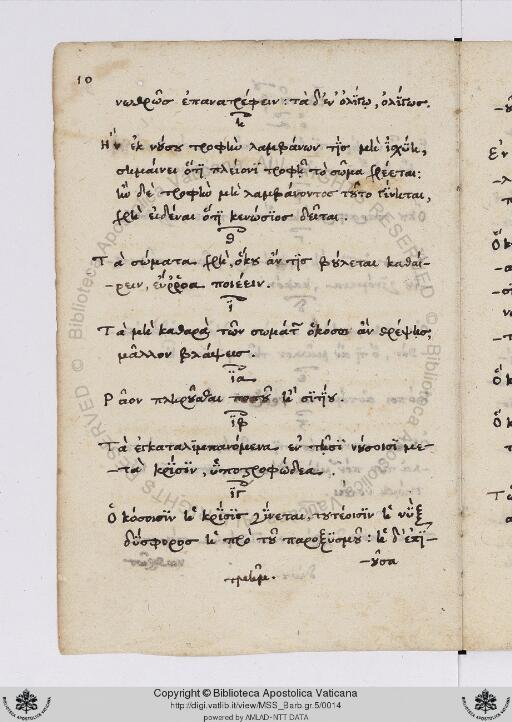 10
νωθρῶς ἐπανατρέφειν: τὰ δ' ἐν ὀλίγῳ, ὀλίγως.
η
Ἢν ἐκ νόσου τροφὴν λαμβάνων τὶς μὴ ἰσχύῃ,
σημαίνει ὅτι πλείονι τροφῇ τὸ σῶμα χρέεται:
ἢν δὲ τροφὴν μὴ λαμβάνοντος τοῦτο γίνηται,
χρὴ εἰδέναι ὅτι κενώσιος δεῖται.
θ
Τὰ σώματα χρὴ, ὅκου ἄν τις βούλεται καθαί-
-ρειν, εὔροα ποιέειν.
ϊ
Τὰ μὴ καθαρὰ τῶν σωμάτων ὁκόσῳ ἂν θρέψῃς,
μᾶλλον βλάψεις.
ϊα
Ρᾶον πληροῦσθαι ποτοῦ ἢ σιτίου.
ϊβ
Τὰ ἐγκαταλιμπανόμενα ἐν τῇσι νόσοισι με-
τὰ κρίσιν, ὑποστροφώδεα.
ϊγ
Ὁκόσοισιν ἡ κρίσις γίνεται, τουτέοισιν ἡ νὺξ
δύσφορος ἡ πρὸ τοῦ παροξυσμοῦ: ἡ δ' ἐπϊ-
-οῦσα
Copyright © Biblioteca Apostolica Vaticana
http://digi.vatlib.it/view/MSS_Barb.gr.5/0014
powered by AMLAD-NTT DATA